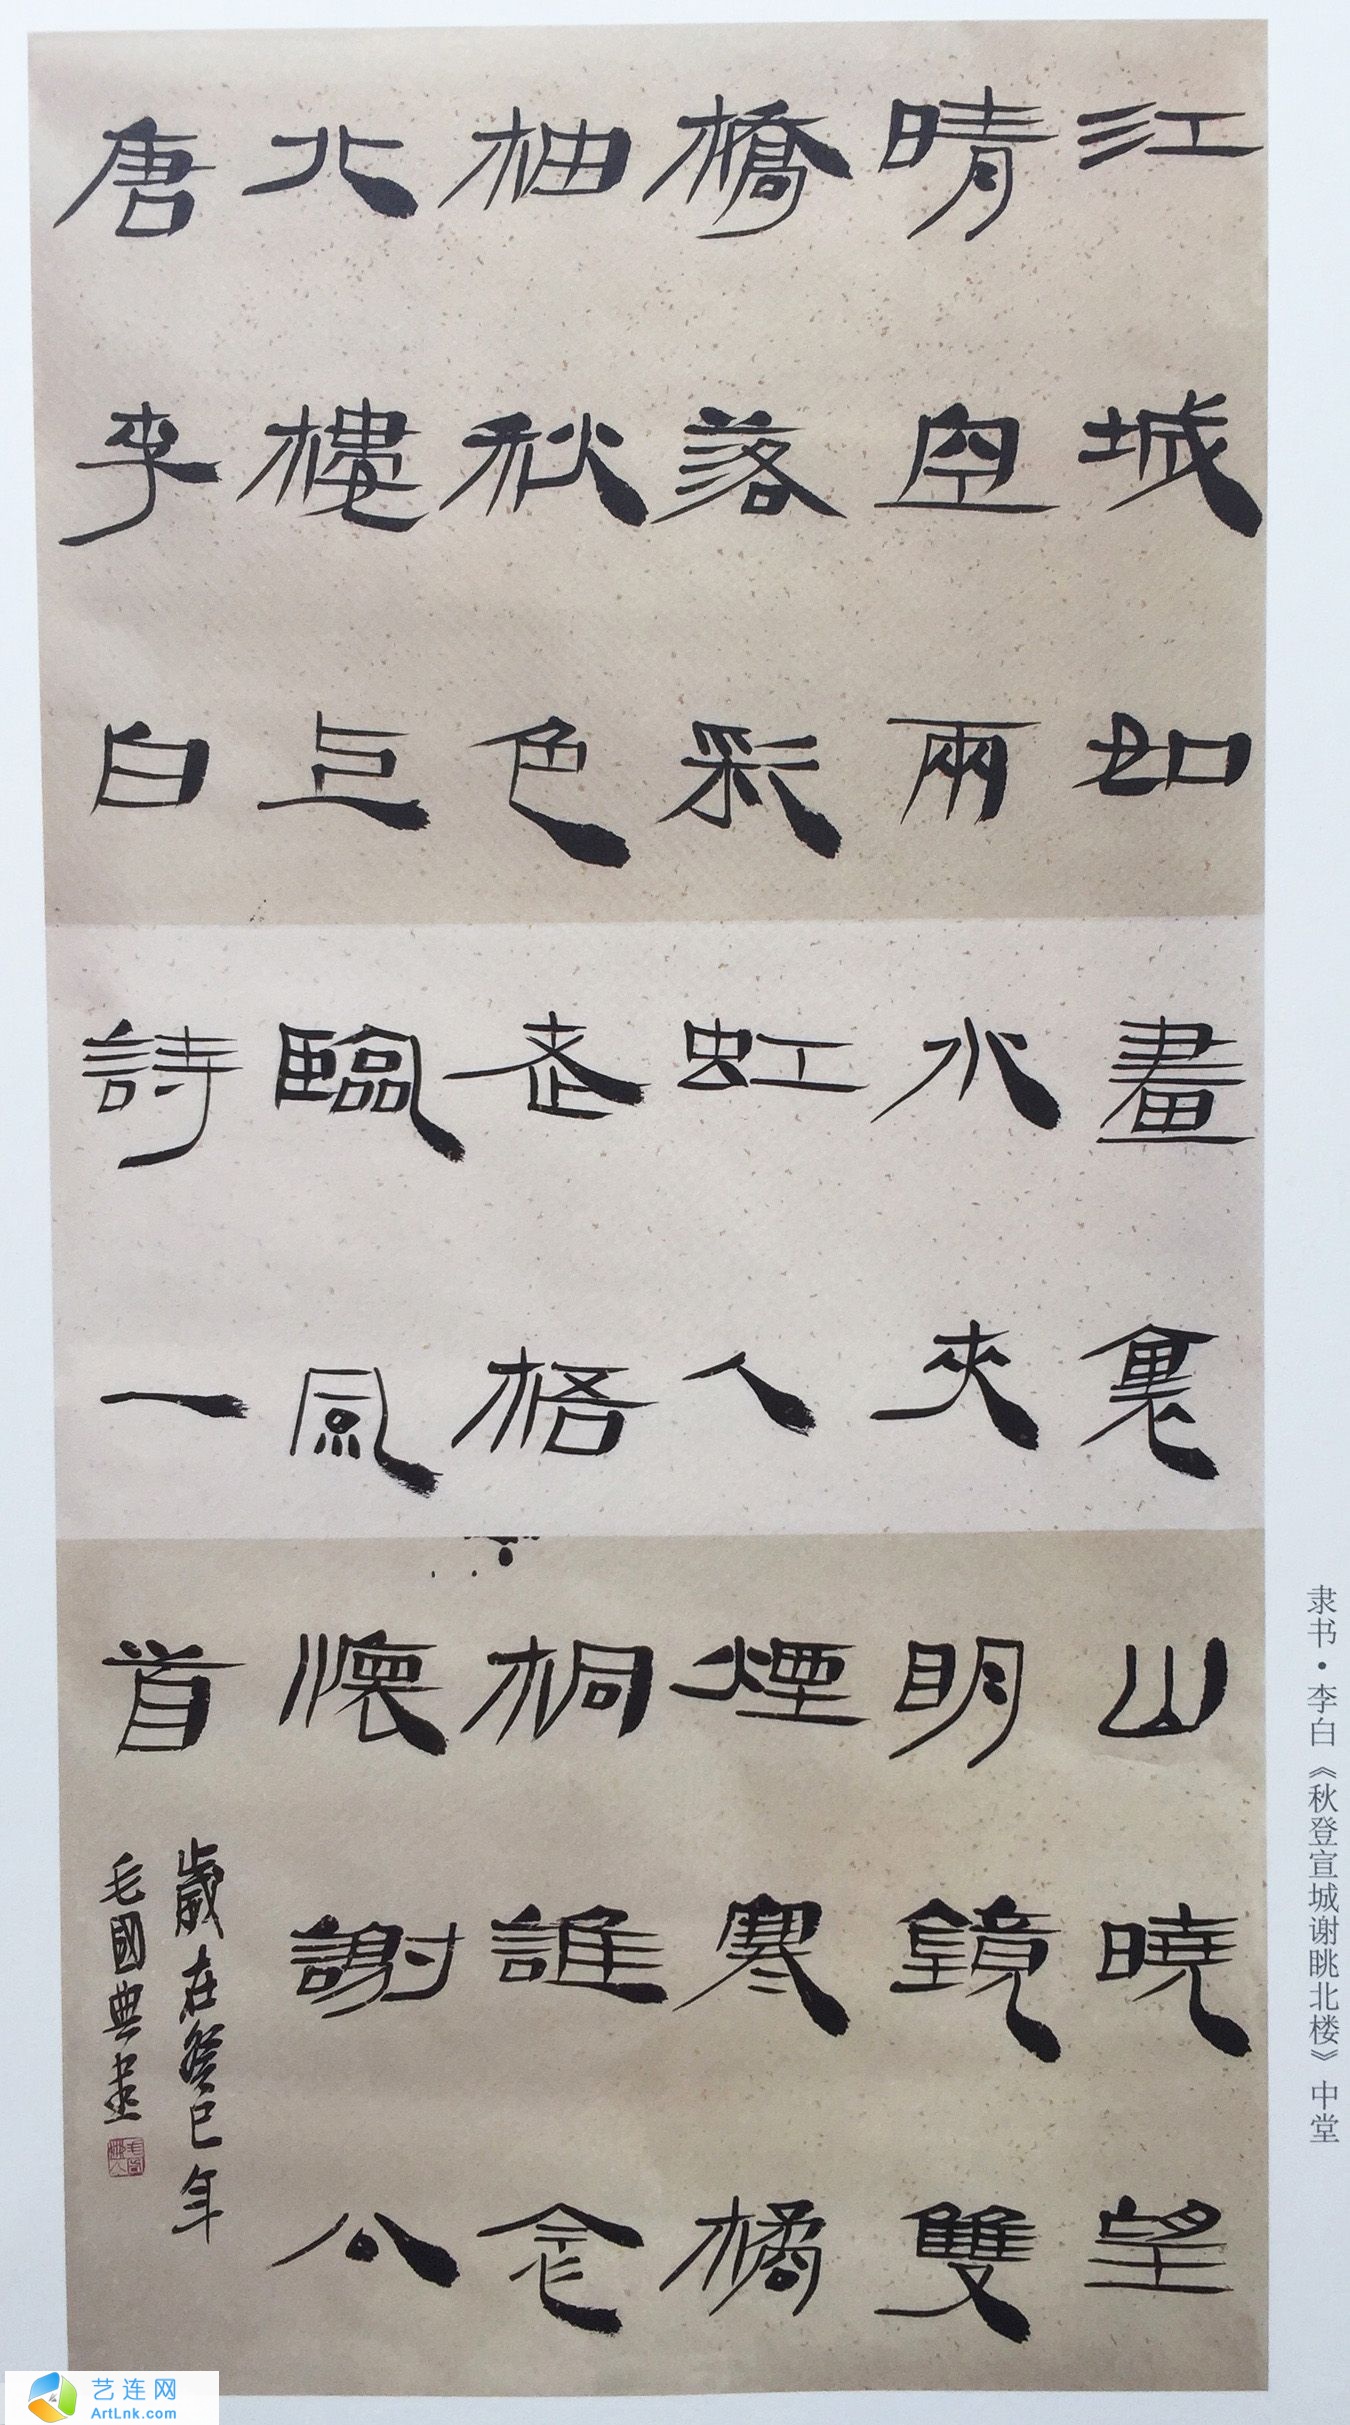 江城如畫裏山曉望
晴空兩水夾明鏡雙
橋落彩虹人煙寒橘
柚秋色老梧桐誰念
北樓上臨風懷謝公
唐李白詩一首
歲在癸巳年
毛國典書
隶书·李白《秋登宣城谢眺北楼》中堂
艺连网
ArtLnk.com